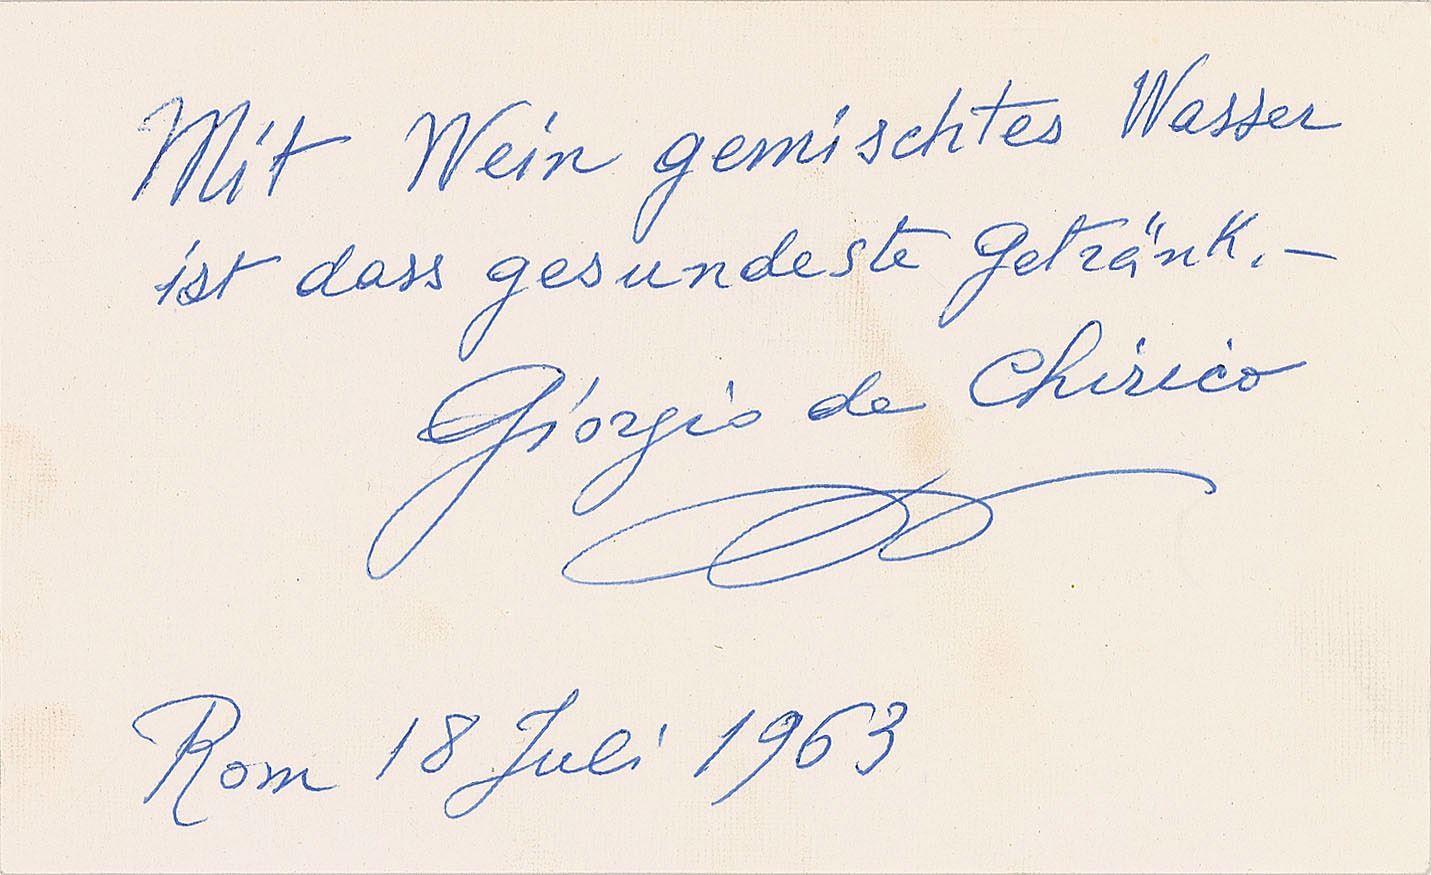 Mit Wein gemischtes Wasser
ist dass gesundeste Getränk. –
Giorgio de Chirico
Rom 18 Juli 1963